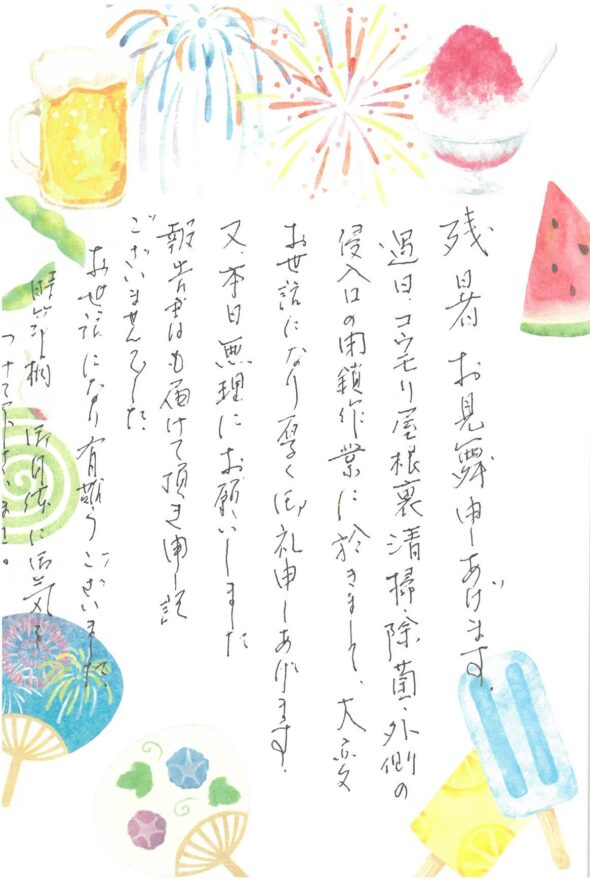 残暑お見舞申しあげます。
過日、コウモリ屋根裏清掃・除菌・外側の
侵入口の閉鎖作業に於きまして、大変
お世話になり厚く御礼申しあげます。
又、本日無理にお願いしました
報告書はも届けて頂き申し訳
ございませんでした。
お世話になり有難うございました。
時節柄 御自体に御気を
つけて下さいませ。